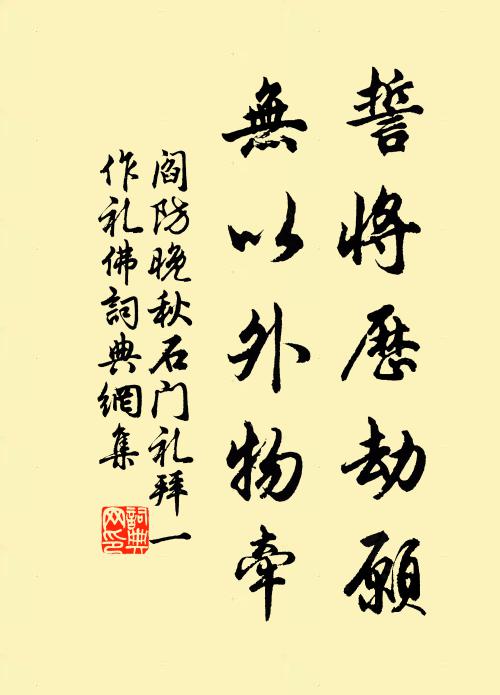 誓將歷劫願
無以外物牽
閻防晚秋石门礼拜一
作礼佛詞典網集
詞典网印